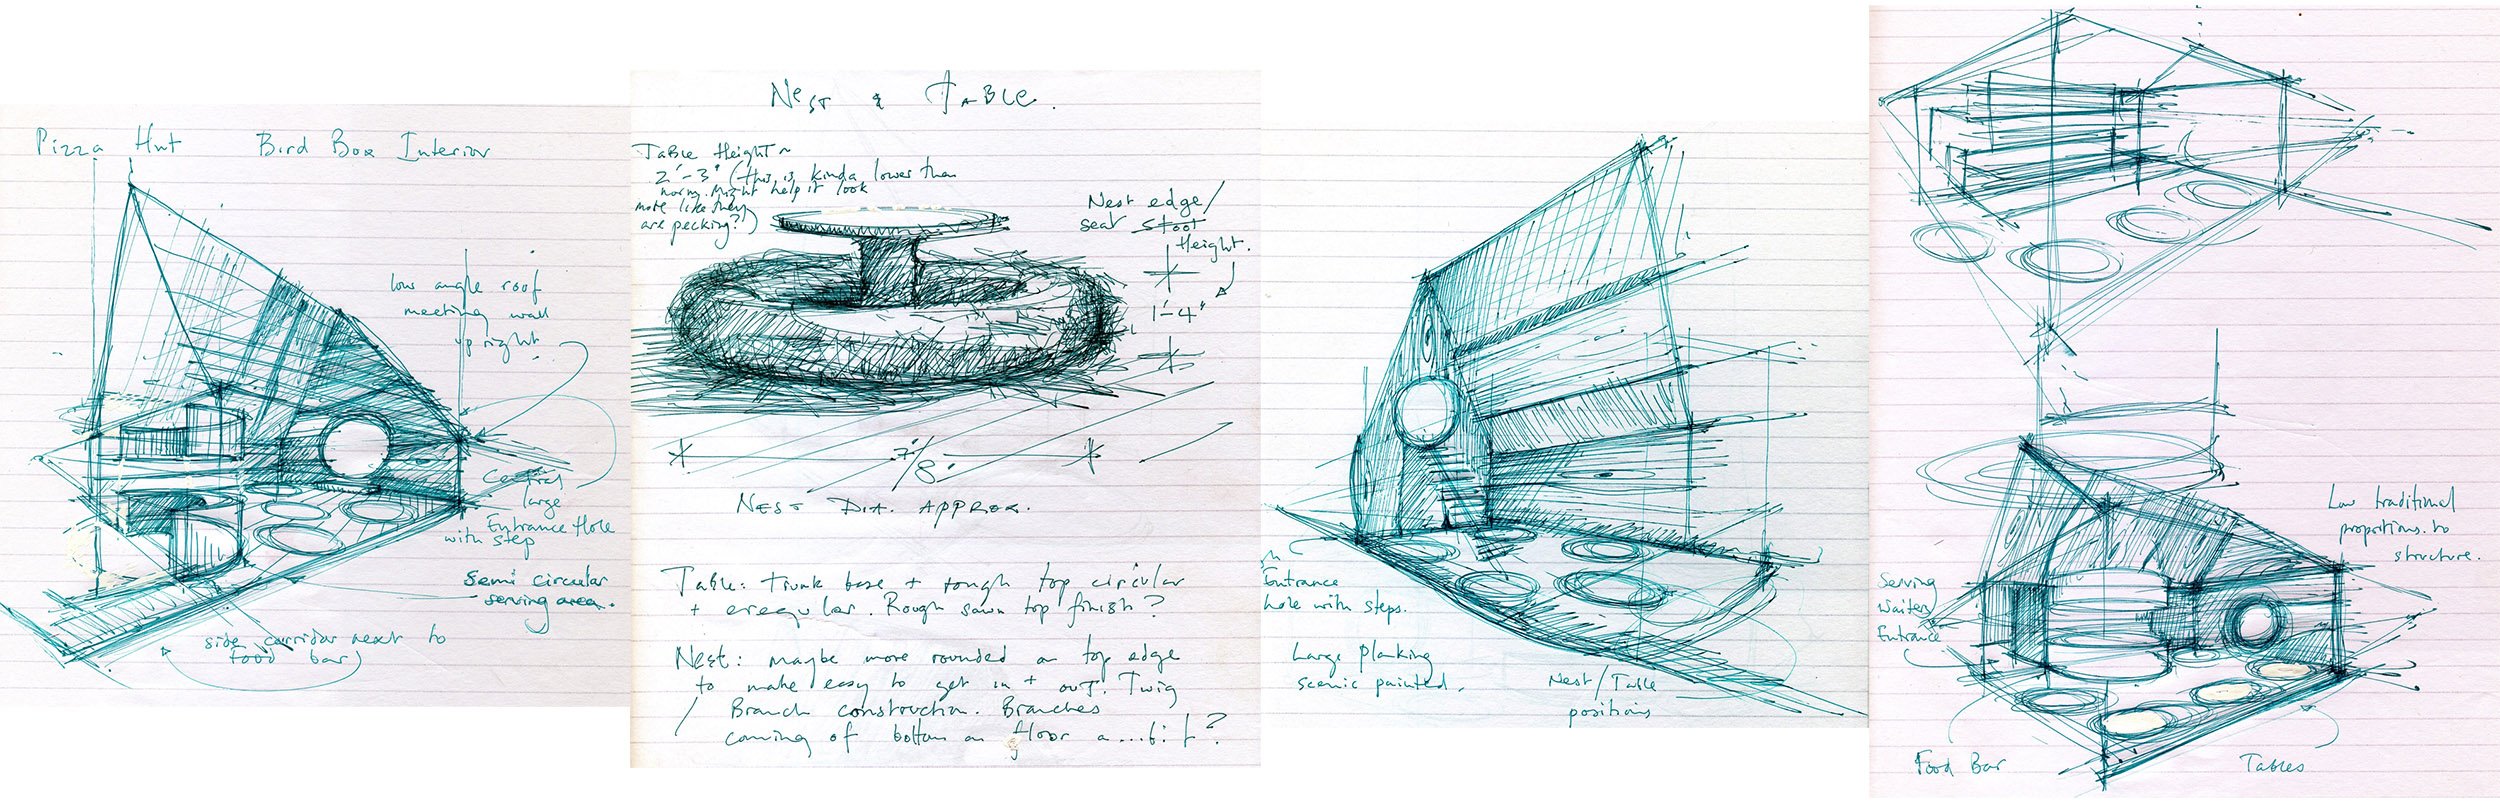 Pizza Hut Bird Box Interior
low angle roof
meeting wall
upright
Central
large
Entrance Hole
with step
semi circular
serving area.
side corridor next to
food bar
Nest & Table.
Table Height ~
2'-3" (this is kinda lower than
norm. Might help it look
more like they
are pecking?)
Nest edge/
seat stoot
Height.
1'-4"
7'/8'
Nest Dia. Approx.
Table: trunk base + rough top circular
+ eregular. Rough sawn top finish?
Nest: maybe more rounded on top edge
to make easy to get in + out. Twig
Branch construction. Branches
coming of bottom on floor a...bit?
Entrance
hole with steps.
Large planking
scenic painted.
Nest/Table
positions
Low traditional
proportions to
structure.
Serving
Waiters
Entrance
Food Bar
Tables